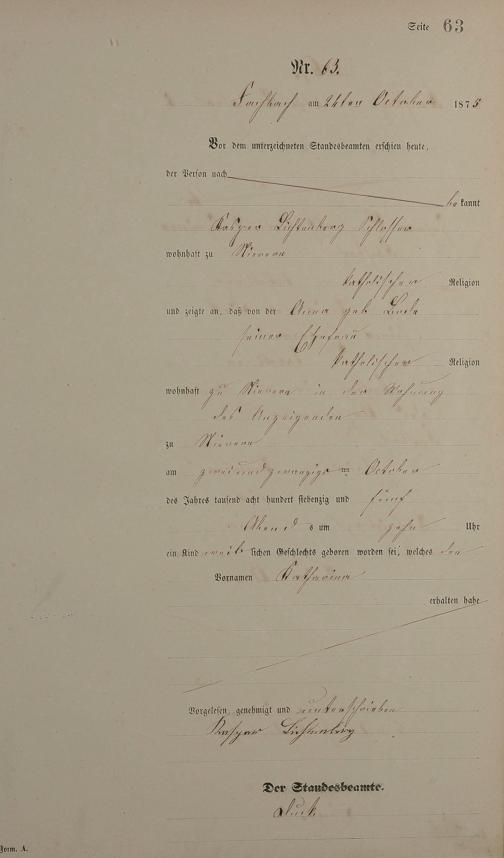 Seite 63
Nr. 63.
Fachbach am 24ten October 1875
Vor dem unterzeichneten Standesbeamten erschien heute,
der Person nach
be kannt
Kaspar Lichtenberg Schlosser
wohnhaft zu Nievern
katholischer Religion
und zeigte an, daß von der Anna geb Linde
seiner Ehefrau
katholischer Religion
wohnhaft zu Nievern in der Wohnung
des Anzeigenden
zu Nievern
am zweiundzwanzigsten October
des Jahres tausend acht hundert siebenzig und fünf
Abend s um zehn Uhr
ein Kind weib lichen Geschlechts geboren worden sei, welches den
Vornamen Katharina
erhalten habe
Vorgelesen, genehmigt und unterschrieben
Kaspar Lichtenberg
Der Standesbeamte.
Form. A.